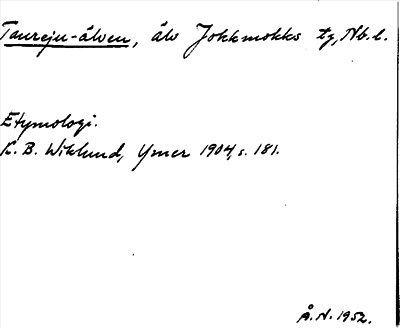 Taureju-älven, älv Jokkmokks tg, Nb. l.
Etymologi.
K. B. Wiklund, Ymer 1904, s. 181.
Å. N. 1952.